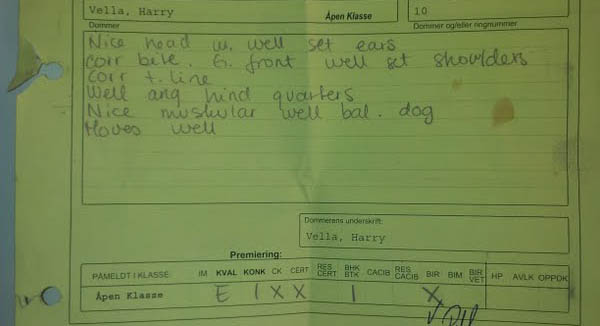 Vella, Harry
Åpen Klasse
10
Dommer
Dommer og/eller ringnummer
Nice head w. well set ears
corr bite. G. front well set shoulders
corr t. line
Well ang hind quarters
Nice muskular well bal. dog
Moves well
Dommerens underskrift:
Vella, Harry
Premiering:
PÅMELDT I KLASSE: IM KVAL KONK CK CERT RES CERT BHK BTK CACIB RES CACIB BIR BIM BIR VET HP AVLK OPPDK
Åpen Klasse E 1 X X 1 X